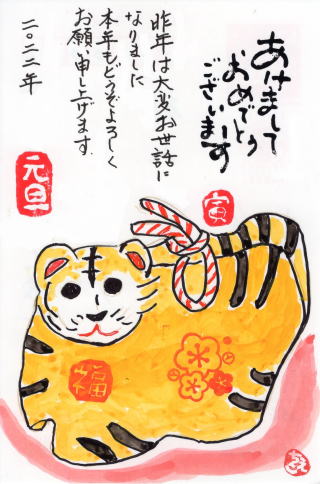 あけまして
おめでとう
ございます
昨年は大変お世話に
なりました
本年もどうぞよろしく
お願い申し上げます
二〇二二年
元旦
寅
福
ちえ